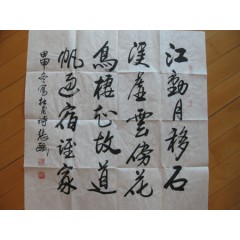 江動月移石
溪虛雲傍花
鳥棲知故道
帆過宿誰家
甲申冬寫杜甫詩